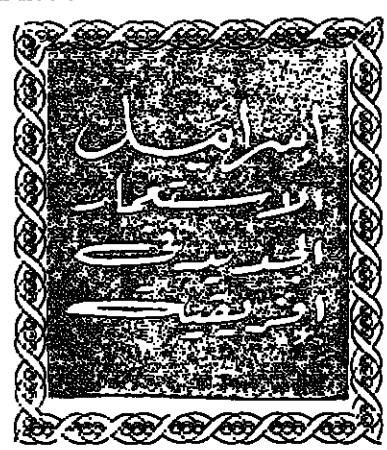 إسرائيل
الاستعمار
الجديد في
إفريقيا